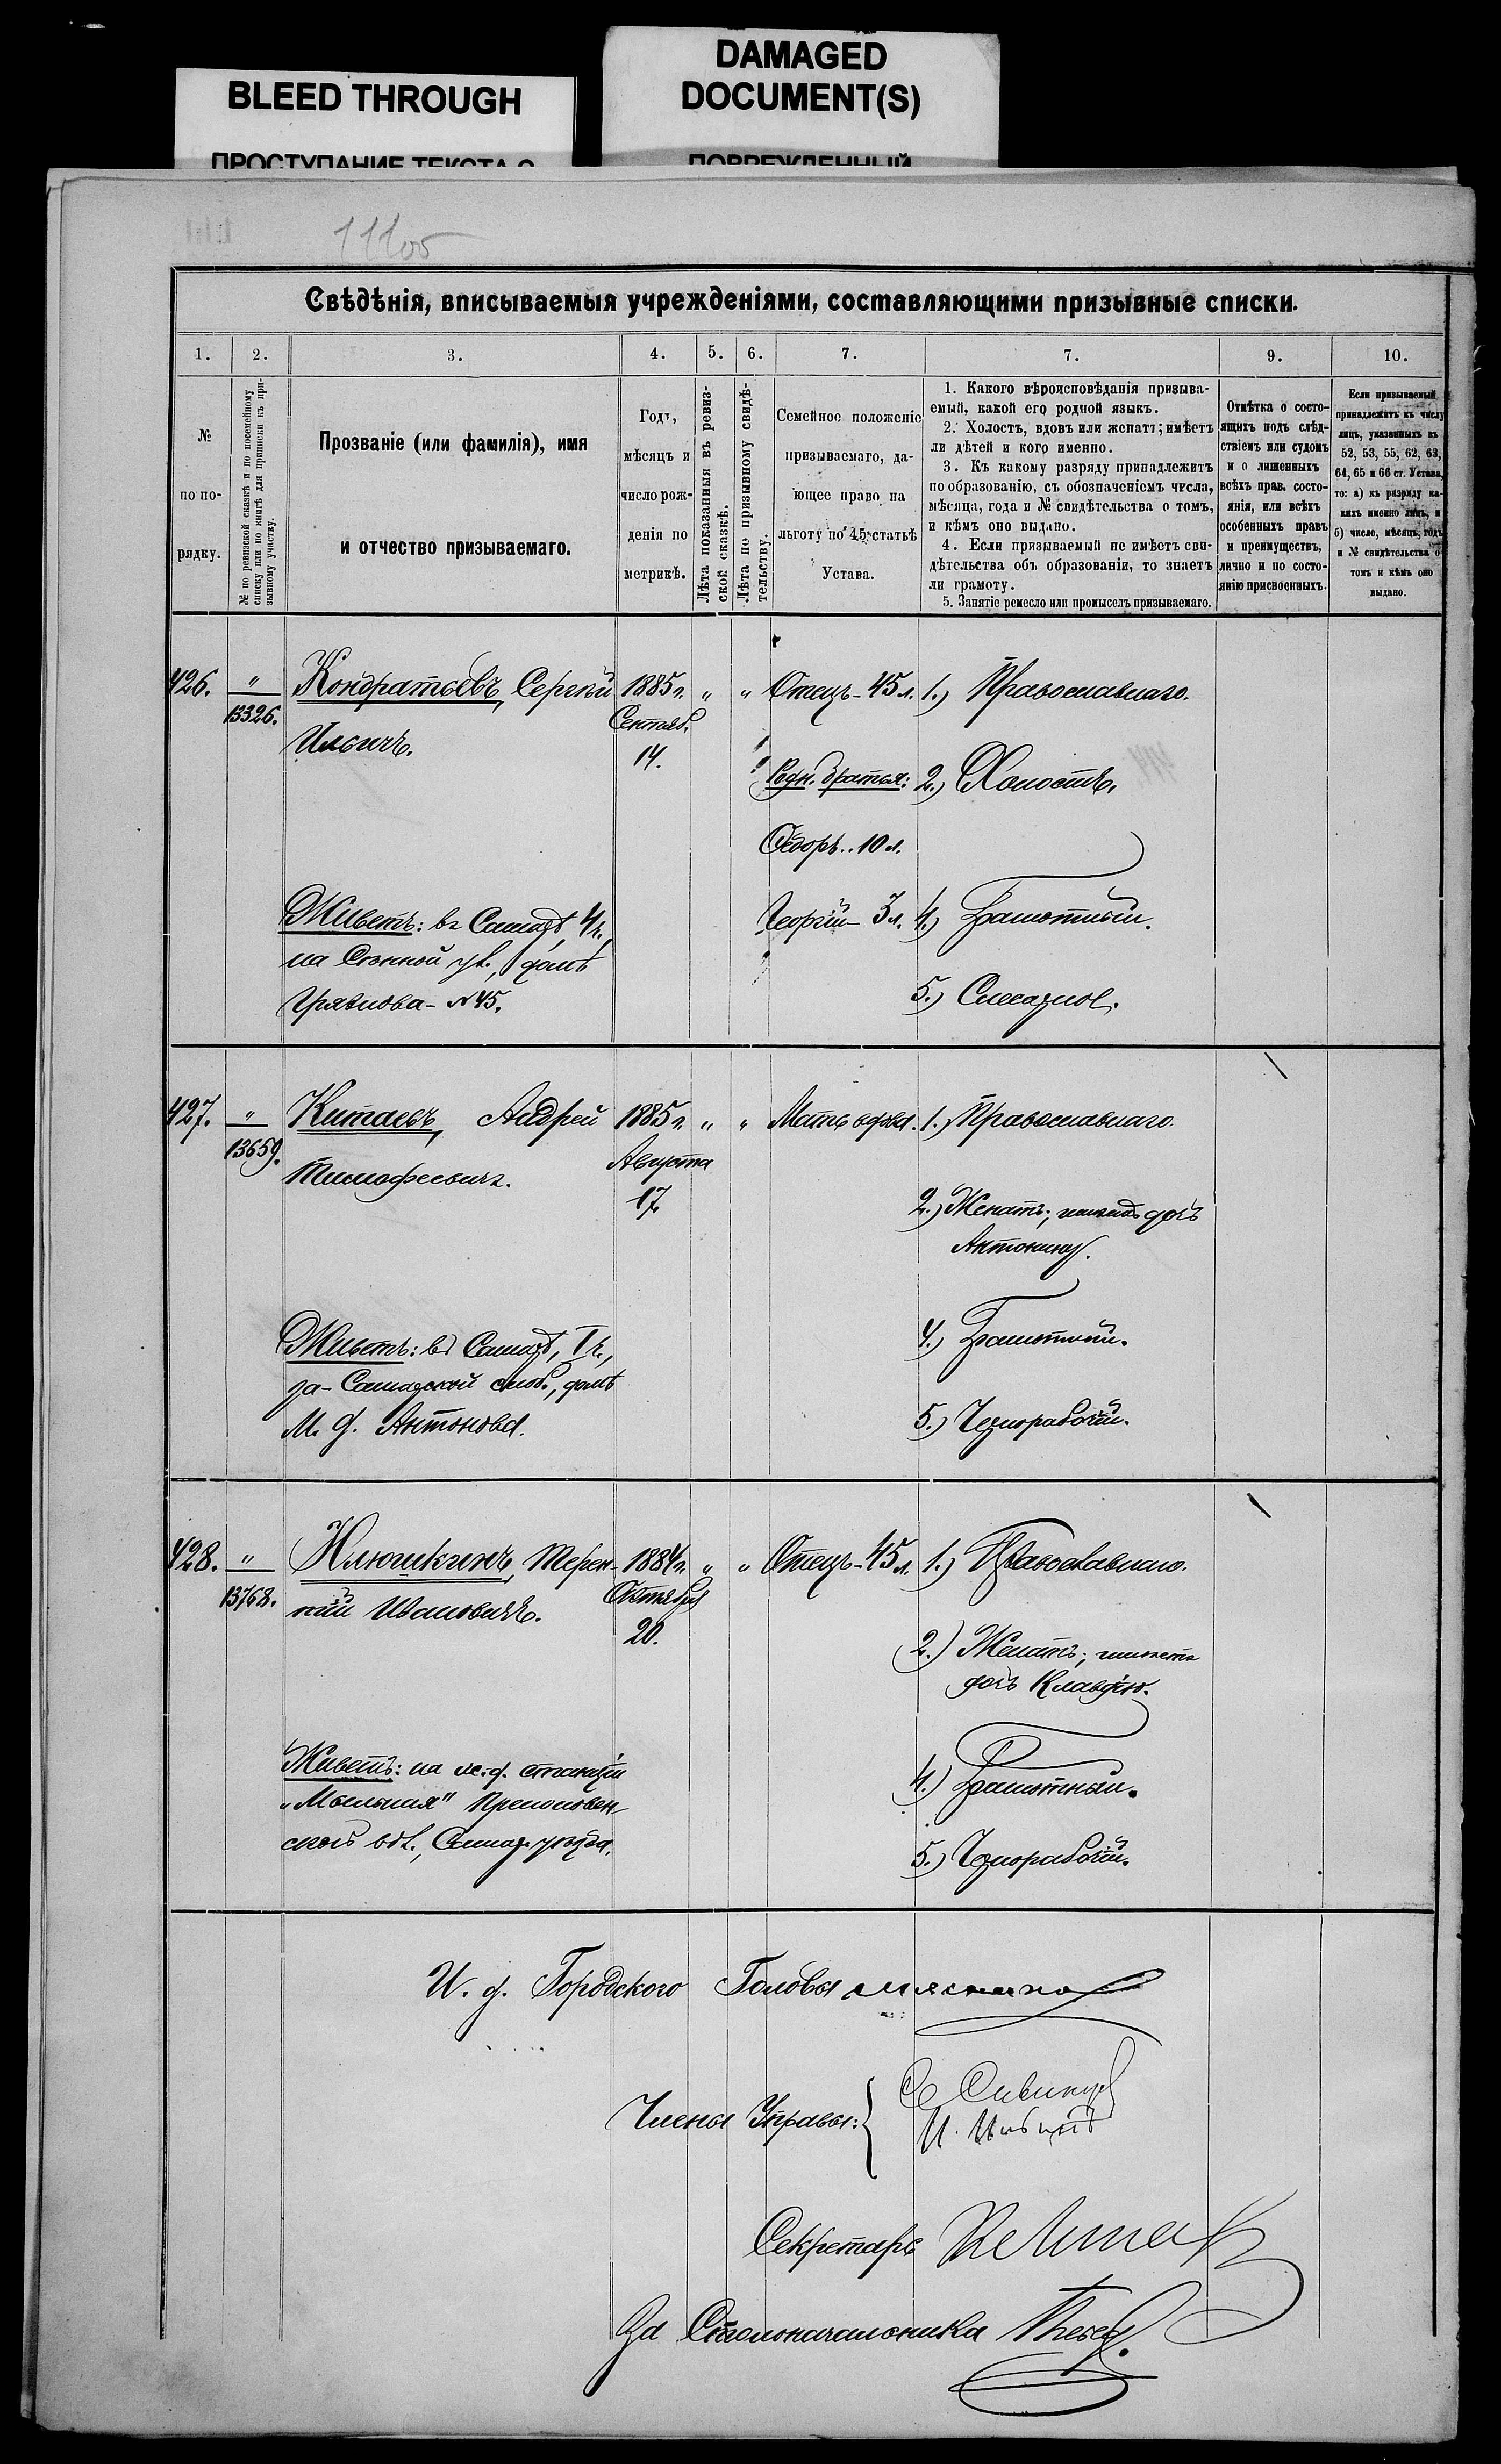 BLEED THROUGH
DAMAGED
DOCUMENT(S)
1105
Свѣдѣнія, вписываемыя учрежденіями, составляющими призывные списки.
1.
2.
3.
4.
5.
6.
7.
7.
9.
10.
№
по по-
рядку.
№ по ревизской сказкѣ и по посемейному
списку или по книгѣ для приписки къ при-
зывному участку.
Прозваніе (или фамилія), имя
и отчество призываемаго.
Годъ,
мѣсяцъ и
число рож-
денія по
метрикѣ.
Лѣта показанныя въ ревиз-
ской сказкѣ.
Лѣта по призывному свидѣ-
тельству.
Семейное положеніе
призываемаго, да-
ющее право на
льготу по 45 статьѣ
Устава.
1. Какого вѣроисповѣданія призыва-
емый, какой его родной языкъ.
2. Холостъ, вдовъ или женатъ; имѣетъ
ли дѣтей и кого именно.
3. Къ какому разряду принадлежитъ
по образованію, съ обозначеніемъ числа,
мѣсяца, года и № свидѣтельства о томъ,
и кѣмъ оно выдано.
4. Если призываемый не имѣетъ сви-
дѣтельства объ образованіи, то знаетъ
ли грамоту.
5. Занятіе ремесло или промыселъ призываемаго.
Отмѣтка о состо-
ящихъ подъ слѣд-
ствіемъ или судомъ
и о лишенныхъ
всѣхъ прав. состо-
янія, или всѣхъ
особенныхъ правъ
и преимуществъ,
лично и по состо-
янію присвоенныхъ.
Если призываемый
принадлежитъ къ числу
лицъ, указанныхъ въ
52, 53, 55, 62, 63,
64, 65 и 66 ст. Устава,
то: а) къ разряду ка-
кихъ именно лицъ, и
б) число, мѣсяцъ, годъ
и № свидѣтельства о
томъ и кѣмъ оно
выдано.
426. " 13326.
Кондратьевъ, Сергѣй
Ильичъ.
1885 г.
Сентяб.
14.
" "
Отецъ - 45 л.
Родн. братья:
Ѳедоръ.. 10 л.
Георгій - 3 л.
1.) Православнаго.
2.) Холостъ.
4.) Грамотный.
5.) Слесарное.
Живетъ: въ Самарѣ, 4 ч.,
на Сѣнной ул., домъ
Грязнова - № 45.
427. " 13659.
Китаевъ, Андрей
Тимофеевичъ.
1885 г.
Августа
17
" "
Мать вдова.
1.) Православнаго.
2.) Женатъ; имѣетъ дочь
Антонину.
4.) Грамотный.
5.) Чернорабочій.
Живетъ: въ Самарѣ, I ч.,
за-Самарской слоб., домъ
М. Ф. Антонова.
428. " 13768.
Илюшкинъ, Терен-
тій Ивановичъ.
1884 г.
Октября
20.
" "
Отецъ - 45 л.
1.) Православнаго.
2.) Женатъ; имѣетъ
дочь Клавдію.
4.) Грамотный.
5.) Чернорабочій.
Живетъ: на ж. д. станціи
„Мыльная" Преполовен-
ской вол., Самар. уѣзда.
И. д. Городского Головы
Члены Управы:
Секретарь
За Столоначальника